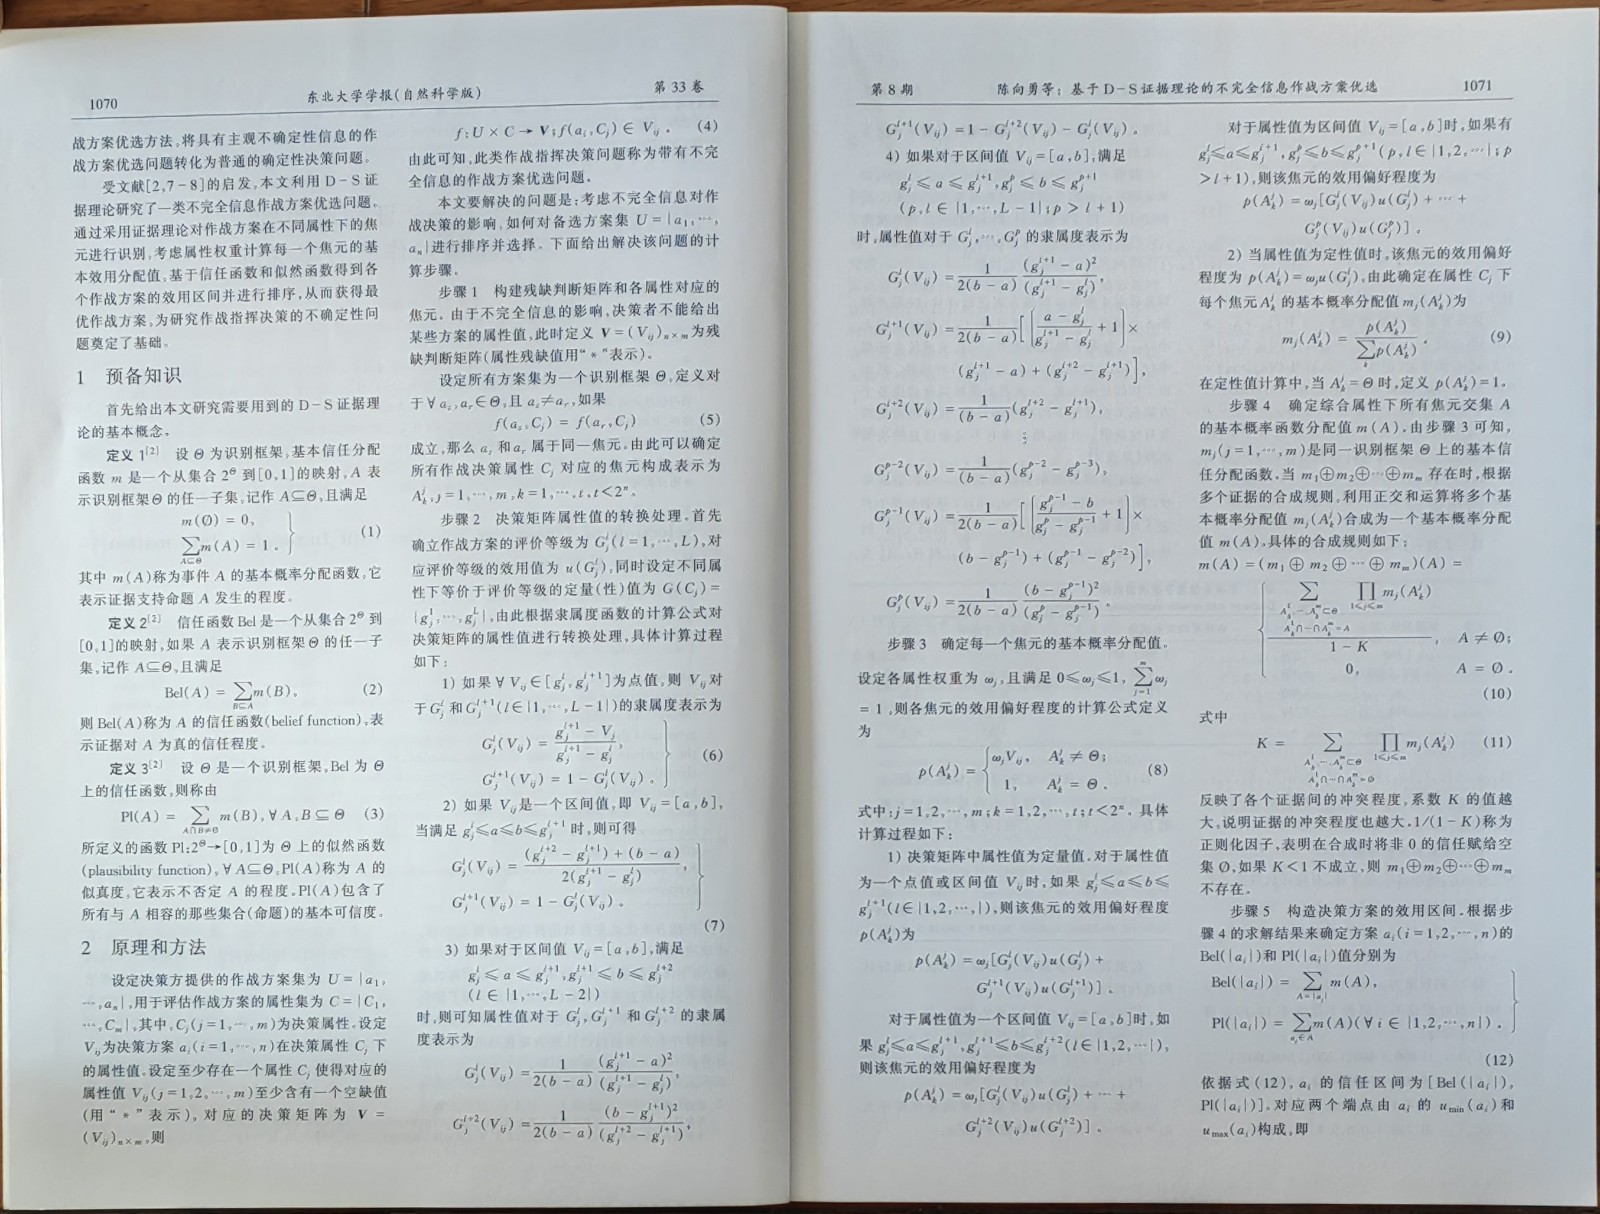 1070
东北大学学报(自然科学版)
第 33 卷
战方案优选方法,将具有主观不确定性信息的作
战方案优选问题转化为普通的确定性决策问题。
受文献[2,7-8]的启发,本文利用 D-S 证
据理论研究了一类不完全信息作战方案优选问题。
通过采用证据理论对作战方案在不同属性下的焦
元进行识别,考虑属性权重计算每一个焦元的基
本效用分配值,基于信任函数和似然函数得到各
个作战方案的效用区间并进行排序,从而获得最
优作战方案,为研究作战指挥决策的不确定性问
题奠定了基础。
1 预备知识
首先给出本文研究需要用到的 D-S 证据理
论的基本概念。
定义 1[2] 设 Θ 为识别框架,基本信任分配
函数 m 是一个从集合 2^Θ 到[0,1]的映射,A 表
示识别框架 Θ 的任一子集,记作 A⊆Θ,且满足
m(∅) = 0,
∑_{A⊆Θ} m(A) = 1. } (1)
其中 m(A)称为事件 A 的基本概率分配函数,它
表示证据支持命题 A 发生的程度。
定义 2[2] 信任函数 Bel 是一个从集合 2^Θ 到
[0,1]的映射,如果 A 表示识别框架 Θ 的任一子
集,记作 A⊆Θ,且满足
Bel(A) = ∑_{B⊆A} m(B), (2)
则 Bel(A)称为 A 的信任函数(belief function),表
示证据对 A 为真的信任程度。
定义 3[2] 设 Θ 是一个识别框架,Bel 为 Θ
上的信任函数,则称由
Pl(A) = ∑_{A∩B≠∅} m(B),∀A,B⊆Θ (3)
所定义的函数 Pl:2^Θ→[0,1]为 Θ 上的似然函数
(plausibility function),∀A⊆Θ,Pl(A)称为 A 的
似真度,它表示不否定 A 的程度。Pl(A)包含了
所有与 A 相容的那些集合(命题)的基本可信度。
2 原理和方法
设定决策方提供的作战方案集为 U = {a_1,
…,a_n},用于评估作战方案的属性集为 C = {C_1,
…,C_m},其中,C_j(j=1,…,m)为决策属性。设定
V_ij为决策方案 a_i(i=1,…,n)在决策属性 C_j 下
的属性值。设定至少存在一个属性 C_j 使得对应的
属性值 V_ij(j=1,2,…,m)至少含有一个空缺值
(用“*”表示),对应的决策矩阵为 V =
(V_ij)_{n×m},则
f:U × C → V;f(a_i,C_j) ∈ V_ij . (4)
由此可知,此类作战指挥决策问题称为带有不完
全信息的作战方案优选问题。
本文要解决的问题是:考虑不完全信息对作
战决策的影响,如何对备选方案集 U = {a_1,…,
a_n}进行排序并选择。下面给出解决该问题的计
算步骤。
步骤 1 构建残缺判断矩阵和各属性对应的
焦元。由于不完全信息的影响,决策者不能给出
某些方案的属性值,此时定义 V=(V_ij)_{n×m}为残
缺判断矩阵(属性残缺值用“*”表示)。
设定所有方案集为一个识别框架 Θ,定义对
于∀a_s,a_r∈Θ,且 a_s≠a_r,如果
f(a_s,C_j) = f(a_r,C_j) (5)
成立,那么 a_s 和 a_r 属于同一焦元。由此可以确定
所有作战决策属性 C_j 对应的焦元构成表示为
A_k^j,j=1,…,m,k=1,…,t,t<2^n。
步骤 2 决策矩阵属性值的转换处理。首先
确立作战方案的评价等级为 G_j^l(l=1,…,L),对
应评价等级的效用值为 u(G_j^l),同时设定不同属
性下等价于评价等级的定量(性)值为 G(C_j) =
{g_j^1,…,g_j^L},由此根据隶属度函数的计算公式对
决策矩阵的属性值进行转换处理,具体计算过程
如下:
1) 如果 ∀V_ij∈[g_j^l,g_j^{l+1}]为点值,则 V_ij对
于 G_j^l 和 G_j^{l+1}(l∈{1,…,L-1})的隶属度表示为
G_j^l(V_ij) = (g_j^{l+1} - V_ij)/(g_j^{l+1} - g_j^l),
G_j^{l+1}(V_ij) = 1 - G_j^l(V_ij)。 } (6)
2) 如果 V_ij是一个区间值,即 V_ij=[a,b],
当满足 g_j^l≤a≤b≤g_j^{l+1} 时,则可得
G_j^l(V_ij) = ((g_j^{l+2} - g_j^{l+1}) + (b - a))/(2(g_j^{l+1} - g_j^l)),
G_j^{l+1}(V_ij) = 1 - G_j^l(V_ij)。 }
(7)
3) 如果对于区间值 V_ij=[a,b],满足
g_j^l ≤ a ≤ g_j^{l+1},g_j^{l+1} ≤ b ≤ g_j^{l+2}
(l ∈ {1,…,L-2})
时,则可知属性值对于 G_j^l,G_j^{l+1} 和 G_j^{l+2} 的隶属
度表示为
G_j^l(V_ij) = 1/(2(b-a)) (g_j^{l+1} - a)^2/(g_j^{l+1} - g_j^l),
G_j^{l+2}(V_ij) = 1/(2(b-a)) (b - g_j^{l+1})^2/(g_j^{l+2} - g_j^{l+1}),
第 8 期
陈向勇等:基于 D-S 证据理论的不完全信息作战方案优选
1071
G_j^{l+1}(V_ij) = 1 - G_j^{l+2}(V_ij) - G_j^l(V_ij)。
4) 如果对于区间值 V_ij=[a,b],满足
g_j^l ≤ a ≤ g_j^{l+1},g_j^p ≤ b ≤ g_j^{p+1}
(p,l ∈ {1,…,L-1};p > l+1)
时,属性值对于 G_j^l,…,G_j^p 的隶属度表示为
G_j^l(V_ij) = 1/(2(b-a)) (g_j^{l+1} - a)^2/(g_j^{l+1} - g_j^l),
G_j^{l+1}(V_ij) = 1/(2(b-a)) [ ( (a - g_j^l)/(g_j^{l+1} - g_j^l) + 1 ) ×
(g_j^{l+1} - a) + (g_j^{l+2} - g_j^{l+1}) ],
G_j^{l+2}(V_ij) = 1/(b-a) (g_j^{l+2} - g_j^{l+1}),
⋮
G_j^{p-2}(V_ij) = 1/(b-a) (g_j^{p-2} - g_j^{p-3}),
G_j^{p-1}(V_ij) = 1/(2(b-a)) [ ( (g_j^{p-1} - b)/(g_j^p - g_j^{p-1}) + 1 ) ×
(b - g_j^{p-1}) + (g_j^{p-1} - g_j^{p-2}) ],
G_j^p(V_ij) = 1/(2(b-a)) (b - g_j^{p-1})^2/(g_j^p - g_j^{p-1})。
步骤 3 确定每一个焦元的基本概率分配值。
设定各属性权重为 ω_j,且满足 0≤ω_j≤1, ∑_{j=1}^m ω_j
= 1,则各焦元的效用偏好程度的计算公式定义
为
p(A_k^j) = { ω_jV_ij, A_k^j ≠ Θ;
1, A_k^j = Θ. (8)
式中:j=1,2,…,m;k=1,2,…,t;t<2^n。具体
计算过程如下:
1) 决策矩阵中属性值为定量值。对于属性值
为一个点值或区间值 V_ij时,如果 g_j^l≤a≤b≤
g_j^{l+1}(l∈{1,2,…,}),则该焦元的效用偏好程度
p(A_k^j)为
p(A_k^j) = ω_j[G_j^l(V_ij)u(G_j^l) +
G_j^{l+1}(V_ij)u(G_j^{l+1})]。
对于属性值为一个区间值 V_ij=[a,b]时,如
果 g_j^l≤a≤g_j^{l+1},g_j^{l+1}≤b≤g_j^{l+2}(l∈{1,2,…}),
则该焦元的效用偏好程度为
p(A_k^j) = ω_j[G_j^l(V_ij)u(G_j^l) + … +
G_j^{l+2}(V_ij)u(G_j^{l+2})]。
对于属性值为区间值 V_ij=[a,b]时,如果有
g_j^l≤a≤g_j^{l+1},g_j^p≤b≤g_j^{p+1}(p,l∈{1,2,…};p
>l+1),则该焦元的效用偏好程度为
p(A_k^j) = ω_j[G_j^l(V_ij)u(G_j^l) + … +
G_j^p(V_ij)u(G_j^p)]。
2) 当属性值为定性值时,该焦元的效用偏好
程度为 p(A_k^j)=ω_ju(G_j^l),由此确定在属性 C_j 下
每个焦元 A_k^j 的基本概率分配值 m_j(A_k^j)为
m_j(A_k^j) = p(A_k^j)/∑_k p(A_k^j) . (9)
在定性值计算中,当 A_k^j=Θ 时,定义 p(A_k^j)=1。
步骤 4 确定综合属性下所有焦元交集 A
的基本概率函数分配值 m(A)。由步骤 3 可知,
m_j(j=1,…,m)是同一识别框架 Θ 上的基本信
任分配函数。当 m_1⊕m_2⊕…⊕m_m 存在时,根据
多个证据的合成规则,利用正交和运算将多个基
本概率分配值 m_j(A_k^j)合成为一个基本概率分配
值 m(A)。具体的合成规则如下:
m(A) = (m_1 ⊕ m_2 ⊕ … ⊕ m_m)(A) =
{ ( ∑_{A_k^1,…,A_k^m⊂Θ, A_k^1∩…∩A_k^m=A} ∏_{1≤j≤m} m_j(A_k^j) )/(1 - K), A ≠ ∅;
0, A = ∅ .
(10)
式中
K = ∑_{A_k^1,…,A_k^m⊂Θ, A_k^1∩…∩A_k^m=∅} ∏_{1≤j≤m} m_j(A_k^j) (11)
反映了各个证据间的冲突程度,系数 K 的值越
大,说明证据的冲突程度也越大。1/(1-K)称为
正则化因子,表明在合成时将非 0 的信任赋给空
集 ∅,如果 K<1 不成立,则 m_1⊕m_2⊕…⊕m_m
不存在。
步骤 5 构造决策方案的效用区间。根据步
骤 4 的求解结果来确定方案 a_i(i=1,2,…,n)的
Bel({a_i})和 Pl({a_i})值分别为
Bel({a_i}) = ∑_{A={a_i}} m(A),
Pl({a_i}) = ∑_{a_i∈A} m(A)(∀i ∈ {1,2,…,n})。 }
(12)
依据式(12),a_i 的信任区间为[Bel({a_i}),
Pl({a_i})]。对应两个端点由 a_i 的 u_min(a_i)和
u_max(a_i)构成,即